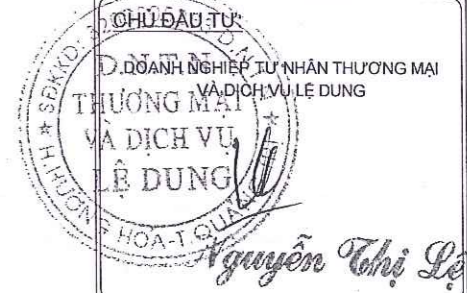 CHỦ ĐẦU TƯ:
DOANH NGHIỆP TƯ NHÂN THƯƠNG MẠI
VÀ DỊCH VỤ LỆ DUNG
D.N.T.N
THƯƠNG MẠI
VÀ DỊCH VỤ
LỆ DUNG
SĐKKD:
H.HƯỚNG HÓA-T.QUẢNG
Nguyễn Thị Lệ